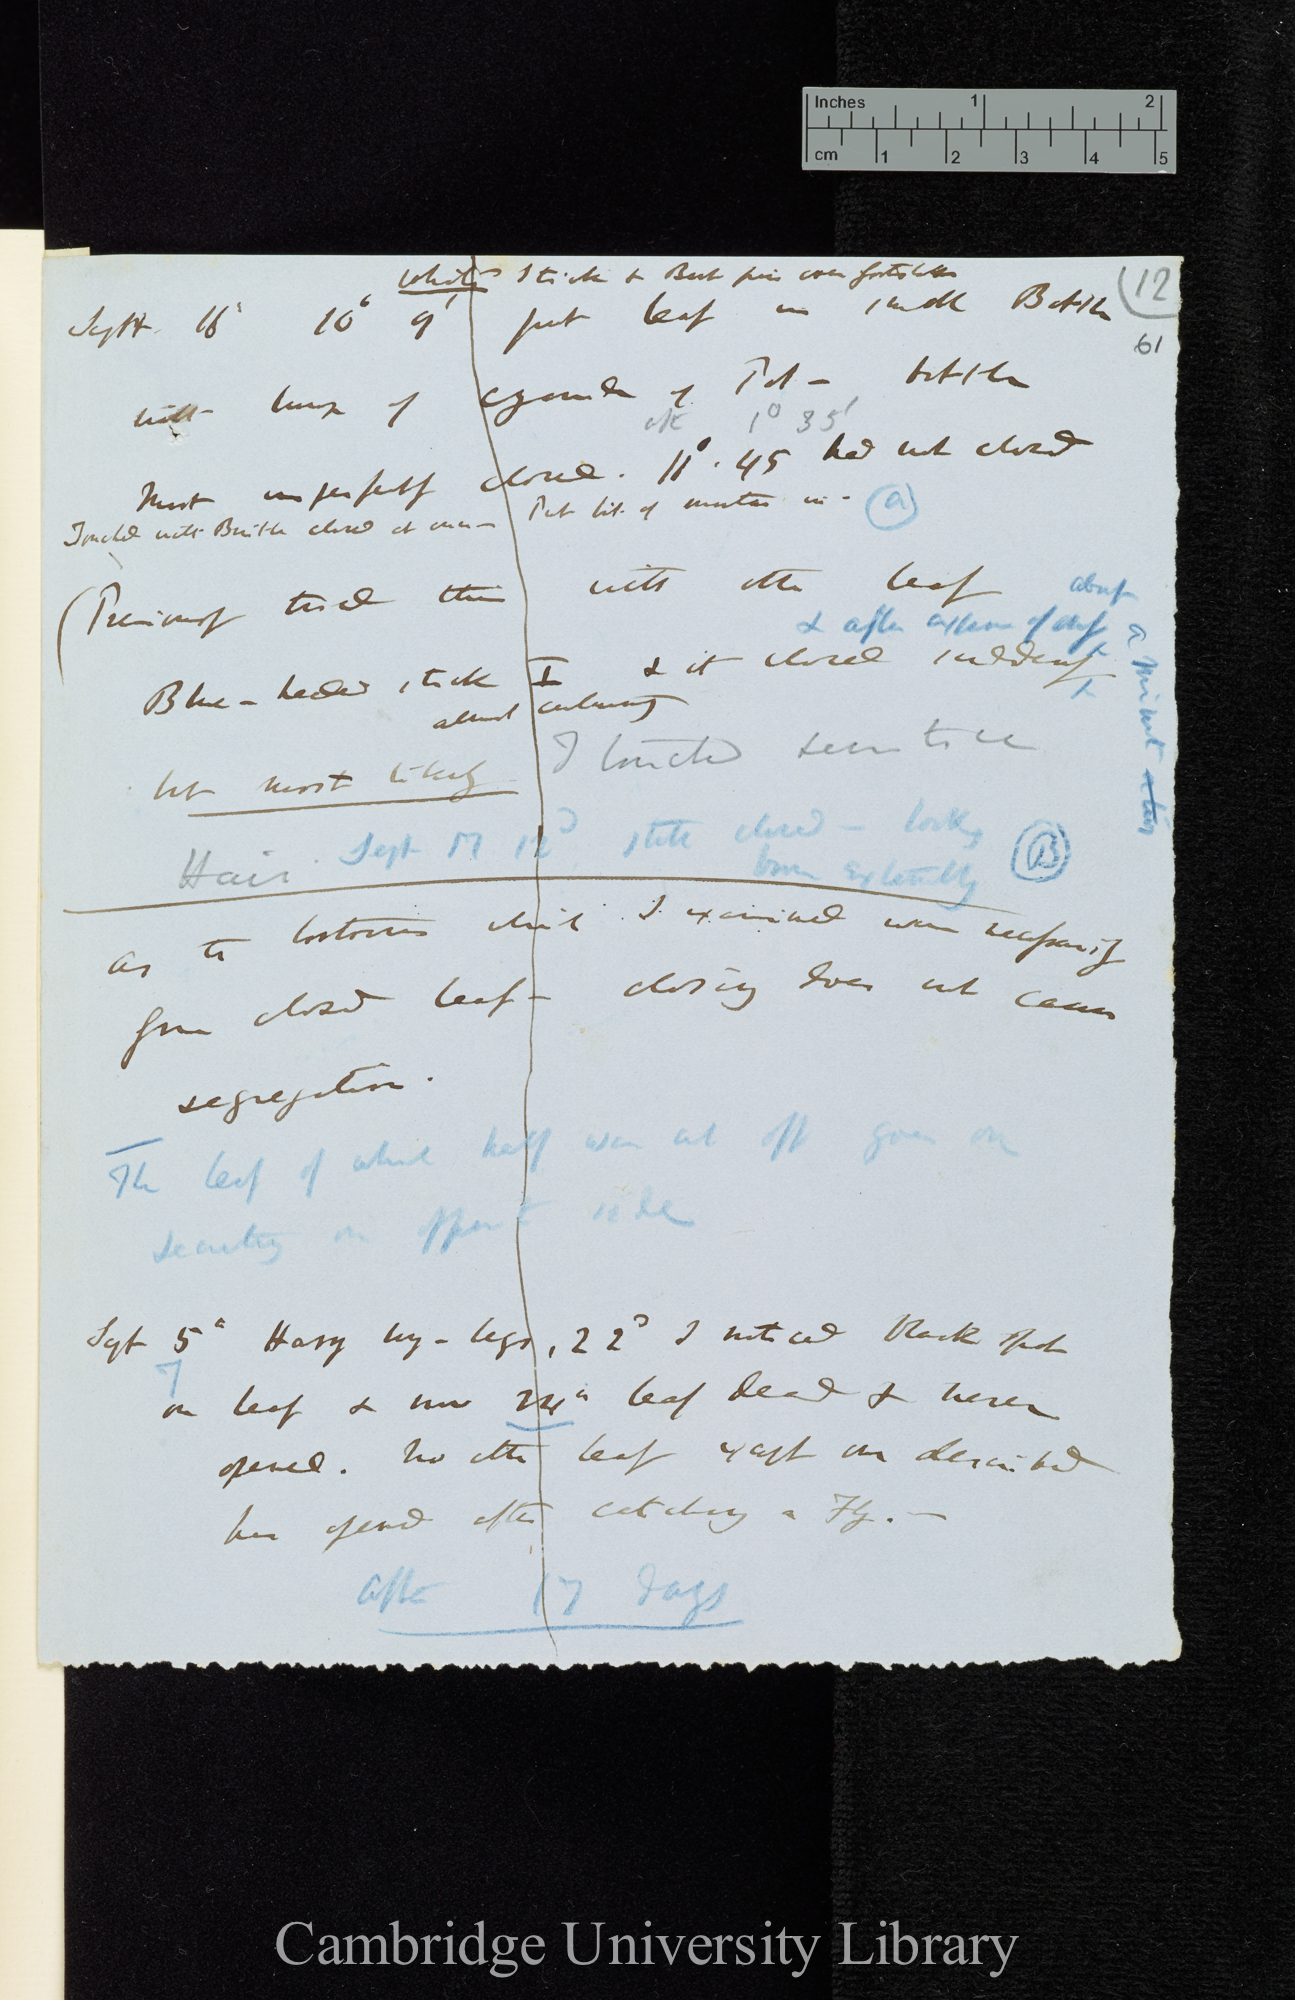 Inches 1 2
cm 1 2 3 4 5
(12
61
white Stick & Bent pin over footstalk
Sept 16 10° 9' put leaf in small Bottle
with lump of cyanide of Pot – bottle
1° 35'
most imperfectly closed. 11°.45 had not closed
Touched with Bristle closed at once – Put bit of meat in –
(a)
(Previously tried this with other leaf
about a minute
& after
Blue-headed stick I & it closed suddenly
almost certainly
but most likely I touched sensitive
Hair. Sept 17 12° still closed – looking
brown externally
(B)
as to bottoms which I examined were necessarily
from closed leaf – closing does not cause
segregation.
The leaf of which half was cut off goes on
secreting on opposite side
Sept 5 Harry by-legs, 22 I noticed black spot
7
on leaf & now 24 leaf dead & never
opened. No other leaf except one described
has opened after catching a Fly. –
after 17 days
Cambridge University Library